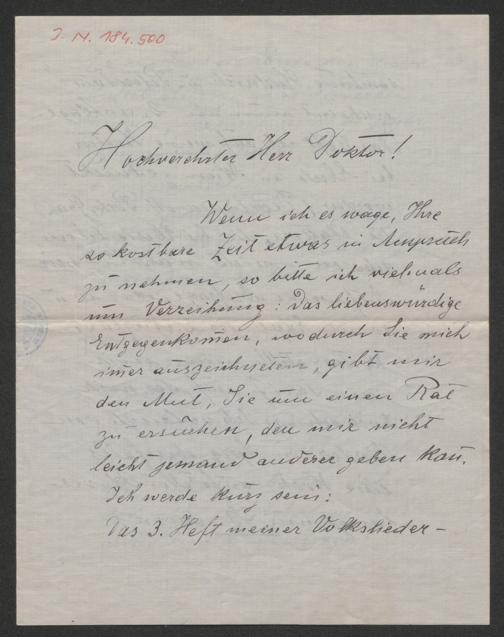 I. N. 184.500
Hochverehrter Herr Doktor!
Wenn ich es wage, Ihre
so kostbare Zeit etwas in Anspruch
zu nehmen, so bitte ich vielmals
um Verzeihung: Das liebenswürdige
Entgegenkomen, wodurch Sie mich
imer auszeichneten, gibt mir
den Mut, Sie um einen Rat
zu ersuchen, den mir nicht
leicht jemand anderer geben kan.
Ich werde kurz sein:
Das 3. Heft meiner Volkslieder-